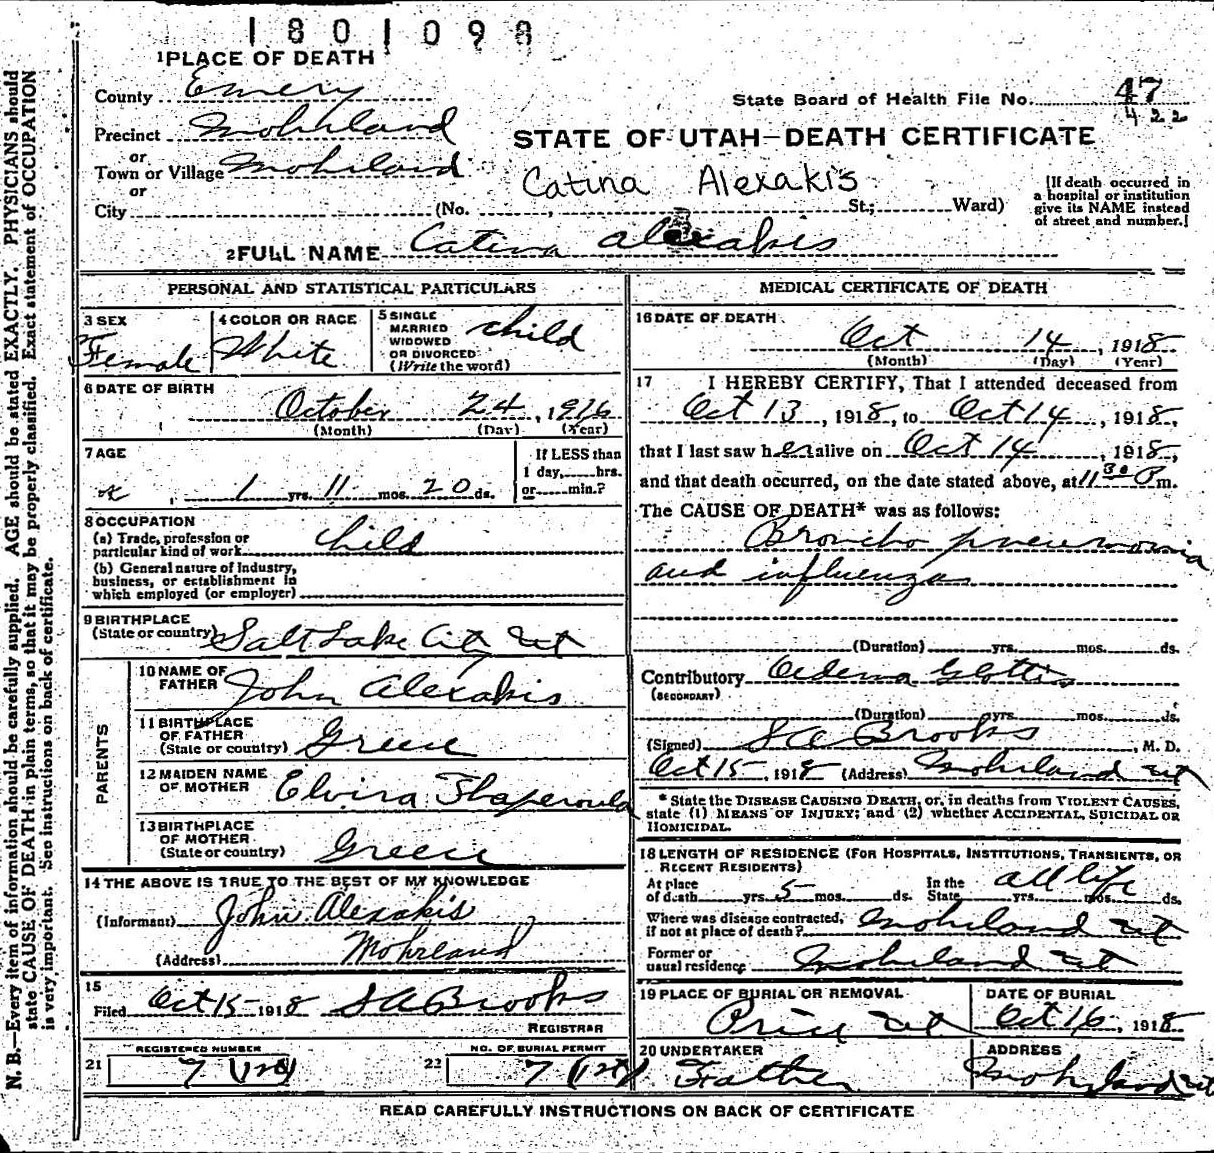 1801098
1 PLACE OF DEATH
County Emery
State Board of Health File No. 47
422
Precinct Mohrland
STATE OF UTAH—DEATH CERTIFICATE
or
Town or Village Mohrland
Catina Alexakis
or
City (No. , St.; Ward)
[If death occurred in
a hospital or institution
give its NAME instead
of street and number.]
2 FULL NAME Catina Alexakis
PERSONAL AND STATISTICAL PARTICULARS
3 SEX
Female
4 COLOR OR RACE
White
5 SINGLE
MARRIED
WIDOWED
OR DIVORCED
(Write the word)
child
6 DATE OF BIRTH
October 24, 1916
(Month) (Day) (Year)
7 AGE
1 yrs. 11 mos. 20 ds.
If LESS than
1 day, hrs.
or min.?
8 OCCUPATION
(a) Trade, profession or
particular kind of work child
(b) General nature of Industry,
business, or establishment in
which employed (or employer)
9 BIRTHPLACE
(State or country) Salt Lake City Ut
PARENTS
10 NAME OF
FATHER John Alexakis
11 BIRTHPLACE
OF FATHER
(State or country) Greece
12 MAIDEN NAME
OF MOTHER Elvira
13 BIRTHPLACE
OF MOTHER
(State or country) Greece
14 THE ABOVE IS TRUE TO THE BEST OF MY KNOWLEDGE
(Informant) John Alexakis
(Address) Mohrland
15
Filed Oct 15 1918 S A Brooks
REGISTRAR
21 REGISTERED NUMBER
7 (128)
22 NO. OF BURIAL PERMIT
7 (128)
MEDICAL CERTIFICATE OF DEATH
16 DATE OF DEATH
Oct 14, 1918
(Month) (Day) (Year)
17 I HEREBY CERTIFY, That I attended deceased from
Oct 13, 1918, to Oct 14, 1918,
that I last saw her alive on Oct 14, 1918,
and that death occurred, on the date stated above, at 11 30 P m.
The CAUSE OF DEATH* was as follows:
Broncho pneumonia
and influenza
(Duration) yrs. mos. ds.
Contributory Oedema Glottis
(SECONDARY)
(Duration) yrs. mos. ds.
(Signed) S A Brooks, M. D.
Oct 15, 1918 (Address) Mohrland Ut
* State the DISEASE CAUSING DEATH, or, in deaths from VIOLENT CAUSES,
state (1) MEANS OF INJURY; and (2) whether ACCIDENTAL, SUICIDAL OR
HOMICIDAL.
18 LENGTH OF RESIDENCE (FOR HOSPITALS, INSTITUTIONS, TRANSIENTS, OR
RECENT RESIDENTS)
At place
of death yrs. 5 mos. ds.
In the
State yrs. mos. ds.
all life
Where was disease contracted,
if not at place of death? Mohrland Ut
Former or
usual residence Mohrland Ut
19 PLACE OF BURIAL OR REMOVAL
Price Ut
DATE OF BURIAL
Oct 16, 1918
20 UNDERTAKER
Father
ADDRESS
Mohrland Ut
READ CAREFULLY INSTRUCTIONS ON BACK OF CERTIFICATE
N. B.—Every item of information should be carefully supplied. AGE should be stated EXACTLY. PHYSICIANS should
state CAUSE OF DEATH in plain terms, so that it may be properly classified. Exact statement of OCCUPATION
is very important. See instructions on back of certificate.